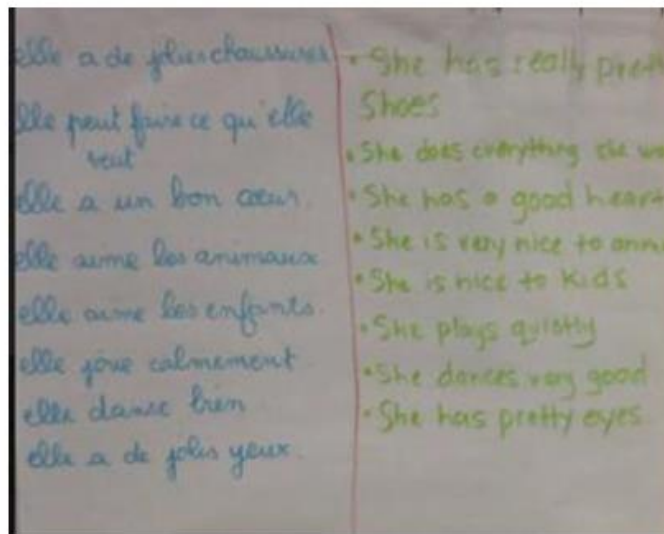 elle a de jolies chaussures
elle peut faire ce qu'elle
veut
elle a un bon cœur.
elle aime les animaux
elle aime les enfants.
elle joue calmement.
elle danse bien
elle a de jolis yeux.
• She has really
Shoes
• She does everything she
• She has a good heart
• She is very nice to
• She is nice to kids
• She plays quietly
• She dances very good
• She has pretty eyes